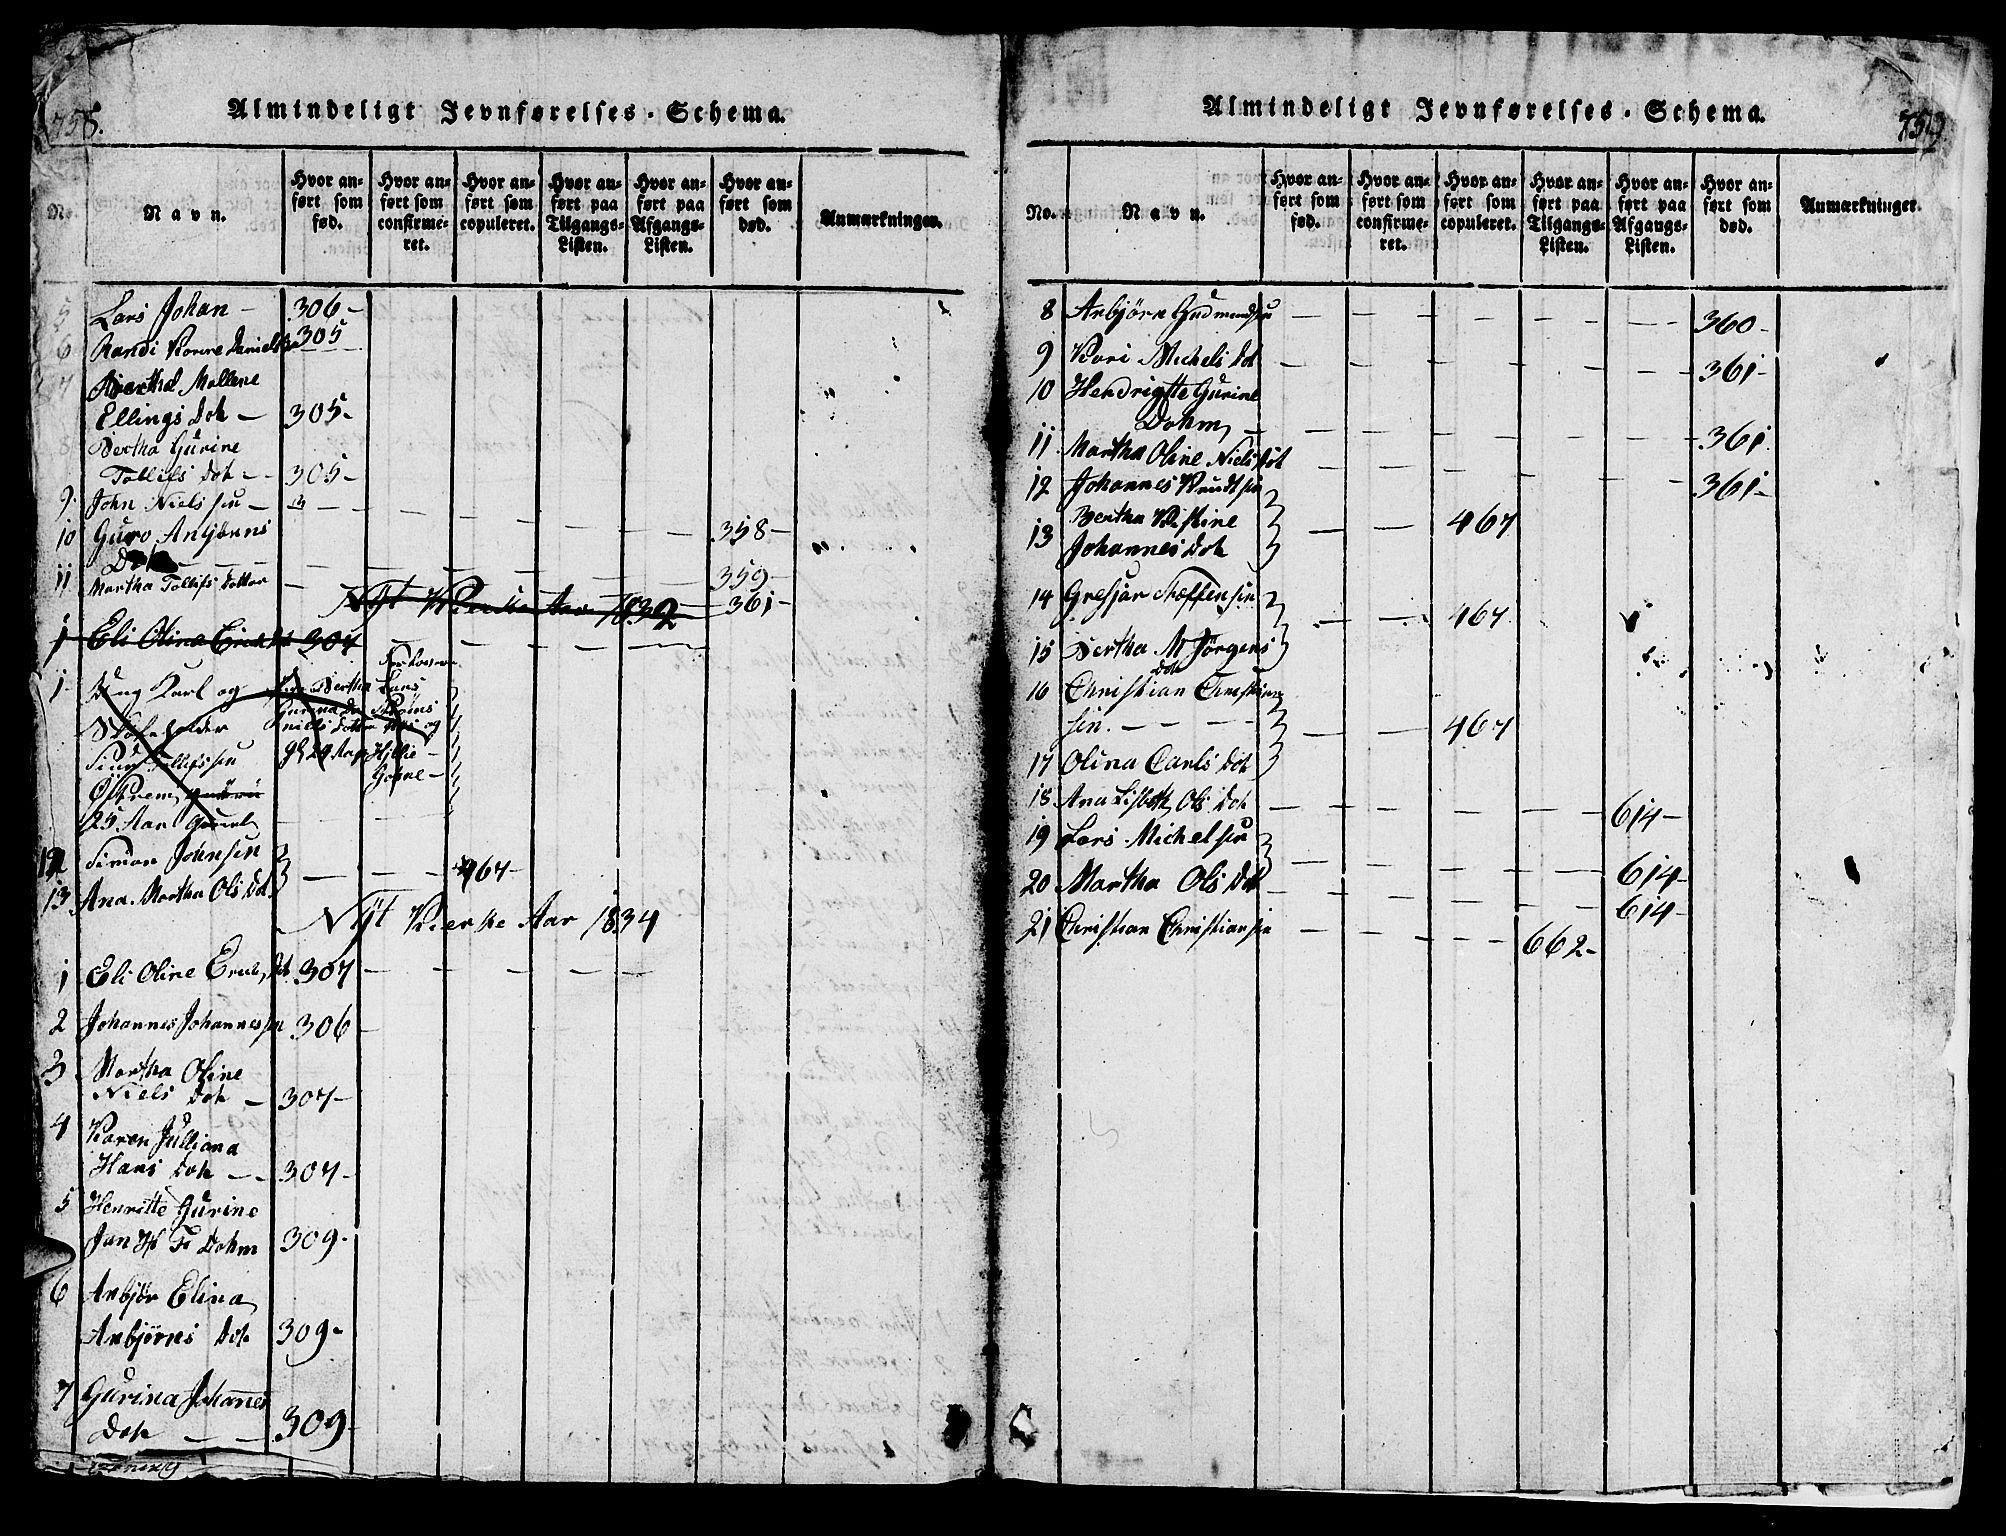 758.
Almindeligt Jevnførelses-Schema.
No. Navn. Hvor anført som fød. Hvor anført som confirmeret. Hvor anført som copuleret. Hvor anført paa Tilgangs-Listen. Hvor anført paa Afgangs-Listen. Hvor anført som død. Anmærkninger.
5 Lars Johan – 306 –
6 Randi Karine Daniels 305
7 Bertha Mallene
Ellings Dot – 305 –
8 Bertha Gurine
Tollefs Dot – 305 –
9. John Niels sen –
10 Guro Anbjørns 358 –
Dot
11 Martha Tollefs Dotter 359 –
Nyt Kierke Aar 1832 361 –
1 Eli Oline Erichs Dot 307
1 Ung Karl og Bertha Lars
niels Dotter og
Tollefssen 29 Aar Hillie
Ostrem
25 Aar Gamel
12 Simon Johnsen
467 –
13 Ana Martha Ols Dot
Nyt Kierke Aar 1834
1 Eli Oline Erichs Dot 307
2 Johannes Johannessen 306 –
3 Martha Oline
Niels Dot – 307 –
4 Karen Julliana
Hans Dot – 307 –
5 Henritte Gurine
Jan H F Dohm 309 –
6 Anbjør Elina
Anbjørns Dot 309 –
7 Gurina Johannes
Dot – – 309 –
759
Almindeligt Jevnførelses-Schema.
No. Navn. Hvor anført som fød. Hvor anført som confirmeret. Hvor anført som copuleret. Hvor anført paa Tilgangs-Listen. Hvor anført paa Afgangs-Listen. Hvor anført som død. Anmærkninger.
8 Anbjørn Gudmundsen 360 –
9 Kari Michels Dot 361 –
10 Hendrigtte Gurine
Dohm – 361
11 Martha Oline Niels Dot 361 –
12 Johannes Knudtsen
467
13 Bertha Kistine
Johannes Dot
14 Gresjar Stæffensen
467
15 Bertha M Jørgens
Dot
16 Christian Christian
sen. – – – 467
17 Olina Carls Dot
18 Ana Lisbeth Ols Dot 614 –
19 Lars Michelsen
614 –
20 Martha Ols Dot 614 –
21 Christian Christiansen 662 –